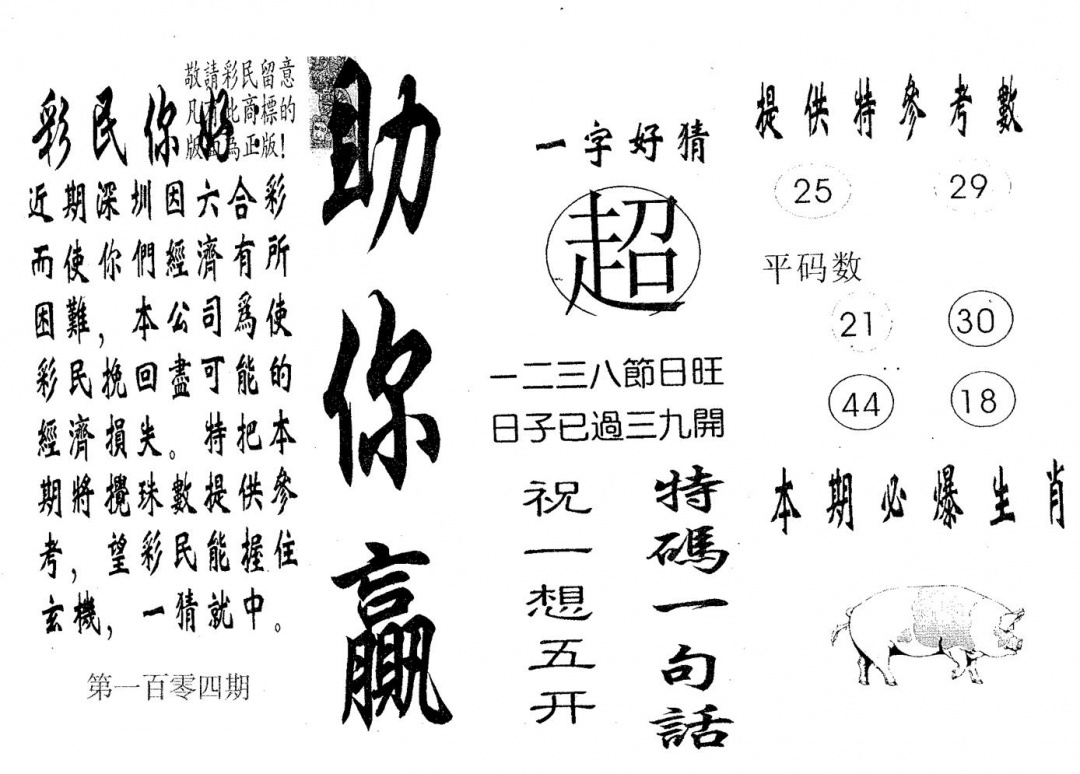 敬請彩民留意
凡有此商標的
版面為正版！
彩民你好：
近期深圳因六合彩
而使你們經濟有所
困難，本公司爲使
彩民挽回盡可能的
經濟損失。特把本
期將攪珠數提供參
考，望彩民能握住
玄機，一猜就中。
第一百零四期
助你贏
一字好猜
超
一二三八節日旺
日子已過三九開
特碼一句話
祝一想五开
提供特參考數
25 29
平码数
21 30
44 18
本期必爆生肖